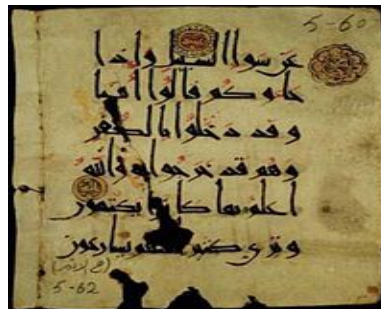 5-60
عن سوا السبيل واذا
جاوكم قالوا امنا
وقد دخلوا بالكفر
وهم قد خرجوا به والله
اعلم بما كانوا يكتمون
وترى يسارعون
5-62